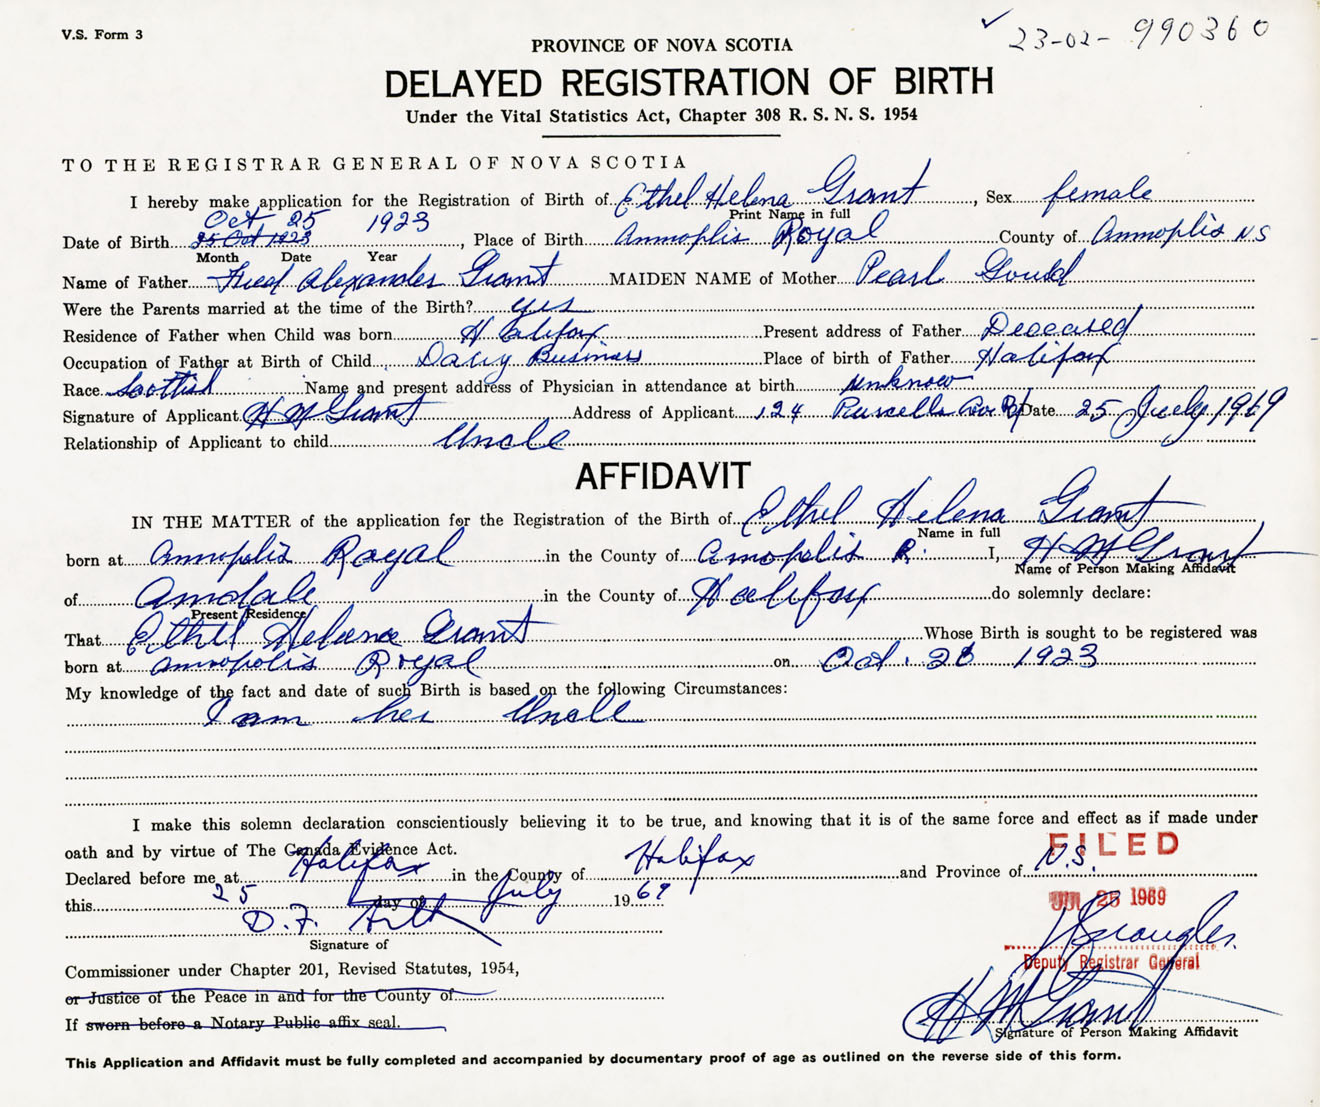 V.S. Form 3
23-02-990360
PROVINCE OF NOVA SCOTIA
DELAYED REGISTRATION OF BIRTH
Under the Vital Statistics Act, Chapter 308 R. S. N. S. 1954
TO THE REGISTRAR GENERAL OF NOVA SCOTIA
I hereby make application for the Registration of Birth of Ethel Helena Grant, Sex female
Print Name in full
Oct 25 1923
Date of Birth 25 Oct 1923, Place of Birth Annoplis Royal County of Annoplis NS
Month Date Year
Name of Father Fred Alexander Grant MAIDEN NAME of Mother Pearl Gould
Were the Parents married at the time of the Birth? yes
Residence of Father when Child was born Halifax Present address of Father Deceased
Occupation of Father at Birth of Child Business Place of birth of Father Halifax
Race Scottish Name and present address of Physician in attendance at birth unknow
Signature of Applicant H M Grant Address of Applicant 124 Date 25 July 1969
Relationship of Applicant to child Uncle
AFFIDAVIT
IN THE MATTER of the application for the Registration of the Birth of Ethel Helena Grant
Name in full
born at Annopolis Royal in the County of Anopolis R. I, H M Grant
Name of Person Making Affidavit
of Amdale in the County of Halifax do solemnly declare:
Present Residence
That Ethel Grant Whose Birth is sought to be registered was
born at Annopolis Royal on Oct. 1923
My knowledge of the fact and date of such Birth is based on the following Circumstances:
I am her Uncle
I make this solemn declaration conscientiously believing it to be true, and knowing that it is of the same force and effect as if made under
oath and by virtue of The Canada Evidence Act.
FILED
Declared before me at Halifax in the County of Halifax and Province of N.S.
this 25 day of July 1969
JUL 25 1969
D. F.
Signature of
Deputy Registrar General
Commissioner under Chapter 201, Revised Statutes, 1954,
or Justice of the Peace in and for the County of
H M Grant
If sworn before a Notary Public affix seal.
Signature of Person Making Affidavit
This Application and Affidavit must be fully completed and accompanied by documentary proof of age as outlined on the reverse side of this form.